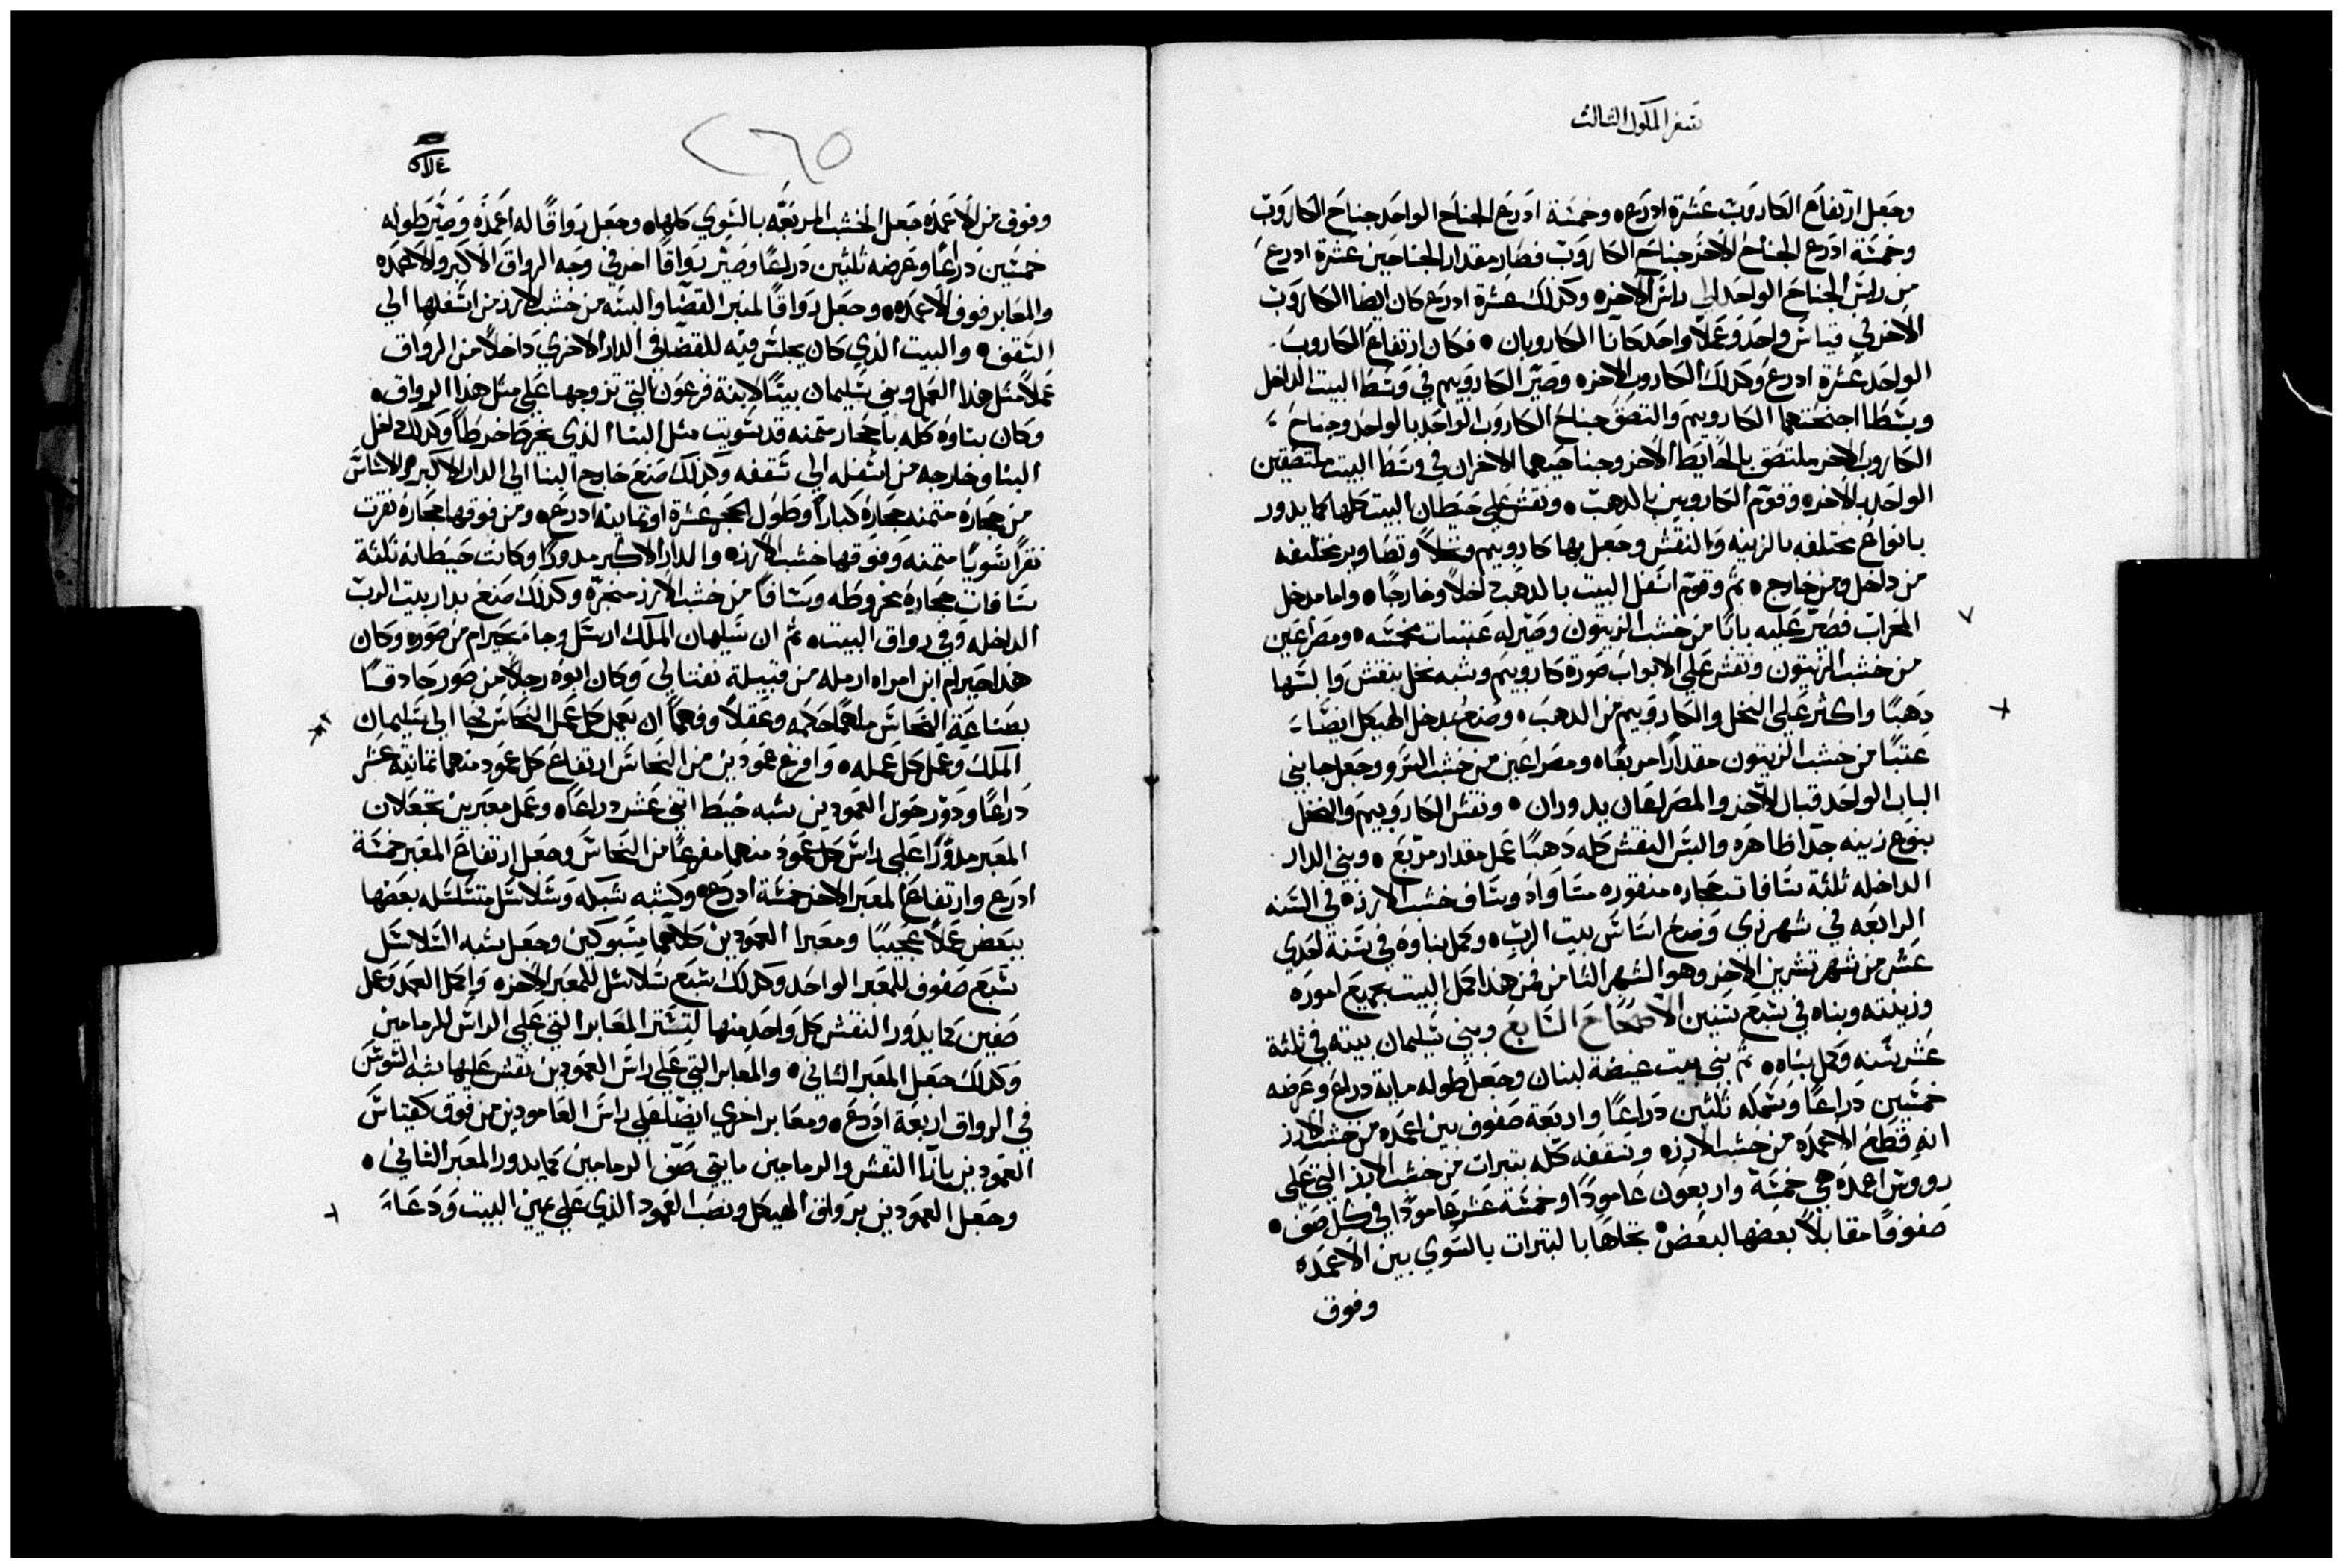 سفر الملوك الثالث
وجعل ارتفاع الكاروب عشرة ادرع، وخمسة ادرع الجناح الواحد جناح الكاروب
وخمسة ادرع الجناح الاخر جناح الكاروب فصار مقدار الجناحين عشرة ادرع
من راس الجناح الواحد الي راس الاخر، وكذلك عشرة ادرع كان ايضا الكاروب
الاخر في قياس واحد وعملا واحد كانا الكاروبان • فكان ارتفاع الكاروب
الواحد عشرة ادرع وكذلك الكاروب الاخر، وصير الكاروبيم في وسط البيت الداخل
وبسطا اجنحتهما الكاروبيم والتصق جناح الكاروب الواحد بالواحد وجناح
الكاروب الاخر ملتصق بالحايط الاخر وجناحيهما الاخران في وسط البيت ملتصقين
الواحد بالاخر، وقوم الكاروبين بالدهب • ونقش علي حيطان البيت كلها كما يدور
بانواع مختلفه بالزينه والنقش وجعل بها كاروبيم ونخلا وتصاوير مختلفه
من داخل ومن خارج • ثم وقوم اسفل البيت بالدهب داخلا وخارجا • واما مدخل
المحراب فصير عليه بابا من خشب الزيتون وصير له عتبات مخمسه • ومصراعين
من خشب الزيتون ونقش علي الابواب صورة كاروبيم وشبه نخل بنقش والبسها
دهبا واكثر علي النخل والكاروبيم من الدهب • وصنع لمدخل الهيكل ايضا
عتبا من خشب الزيتون مقدارا مربعا، ومصراعين من خشب السرو وجعل جابني
الباب الواحد قبال الاخر والمصراعان يدوران • ونقش الكاروبيم والنخل
بنوع زينه جدا ظاهره والبس النقش كله دهبا عمل مقدار مربع • وبني الدار
الداخله ثلثة سافات حجاره منقوره مساواه وساف خشب الارز، في السنه
الرابعه في شهر زي وضع اساس بيت الرب، وكمل بناوه في سنة احدي
عشر من شهر تشرين الاخر وهو الشهر الثامن فمن هذا كمل البيت بجميع اموره
وزينته وبناه في سبع سنين الاصحاح السابع وبني سليمان بيته في ثلثة
عشر سنه وكمل بناه • ثم بني بيت غيضة لبنان وجعل طوله ماية دراع وعرضه
خمسين دراعا وسمكه ثلثين دراعا واربعة صفوف بين اعمده من خشب الارز
انه قطع الاعمده من خشب الارز، وسقفه كله بتبرات من خشب الارز التي علي
رووس اعمدة هي خمسة واربعون عامودا وخمسة عشر عامودا في كل صف •
صفوفا مقابلا بعضها لبعض بخلاها بالتبرات بالسوي بين الاعمده
وفوق
٢٦٥
وفوق من الاعمده جعل الخشب المربعه بالسوي كلها، وجعل رواقا له اعمده وصير طوله
خمسين دراعا وعرضه ثلثين دراعا وصير رواقا اخر في وجه الرواق الاكبر والاعمده
والمعابر فوق الاعمده • وجعل رواقا لمنبر القضا والبسه من خشب الارز من اسفلها الي
السقف • والبيت الذي كان يجلس فيه للقضا في الدار الاخري داخلا من الرواق
عملا مثل هذا العمل وبني سليمان بيتا لابنة فرعون التي تزوجها علي مثل هذا الرواق
وكان بناوه كله باحجار مثمنه قد سويت مثل البنا الذي يخرط خرطا وكذلك داخل
البنا وخارجه من اسفله الي سقفه وكذلك صنع خارج البنا الي الدار الاكبر، والاساس
من حجاره مثمنه حجارة كبارا وطول الحجر عشرة او ثمانية ادرع • ومن فوقها حجارة نقرت
نقرا سويا مثمنه وفوقها خشب الارز، والدار الاكبر مدورا وكانت حيطانه ثلثة
سافات حجارة مخروطه وسافا من خشب الارز منجره وكذلك صنع بدار بيت الرب
الداخله وفي رواق البيت، ثم ان سليمان الملك ارسل وجا محيرام من صور، وكان
هذا حيرام ابن امراه ارمله من قبيلة نفتالي وكان ابوه رجلا من صور حادقا
بصناعة النحاس ملهما حكمه وعقلا وفهما ان يعمل كل عمل النحاس فجا الي سليمان
الملك وعمل كل عمله • وافرغ عمودين من النحاس ارتفاع كل عمود منهما ثمانية عشر
دراعا ودور حول العمودين شبه خيط اثني عشر دراعا، وعمل معبرين تجعلان
المعبر مدورا علي راس كل عمود منهما مفرغا من النحاس وجعل ارتفاع المعبر خمسة
ادرع وارتفاع المعبر الاخر خمسة ادرع • وكشبه شبكه وسلاسل متسلسله بعضها
ببعض عملا عجيبا ومعبرا العمودين كلاهما مسبوكين وجعل شبه السلاسل
سبع صفوف للمعبر الواحد وكذلك سبع سلاسل للمعبر الاخر، واكمل العمد وعمل
صفين كما يدور النقش كل واحد منها لتستر المعابر التي علي الراس للرمامين
وكذلك جعل المعبر الثاني • والمعابر التي علي راس العمودين نقش عليها شبه السوسن
في الرواق اربعة ادرع • ومعابر اخري ايضا علي راس العامودين من فوق كقياس
العمودين بازا النقش والرمامين مايتي صف الرمامين كما يدور المعبر الثاني •
وجعل العمودين برواق الهيكل ونصب العمود الذي علي يمين البيت ودعا